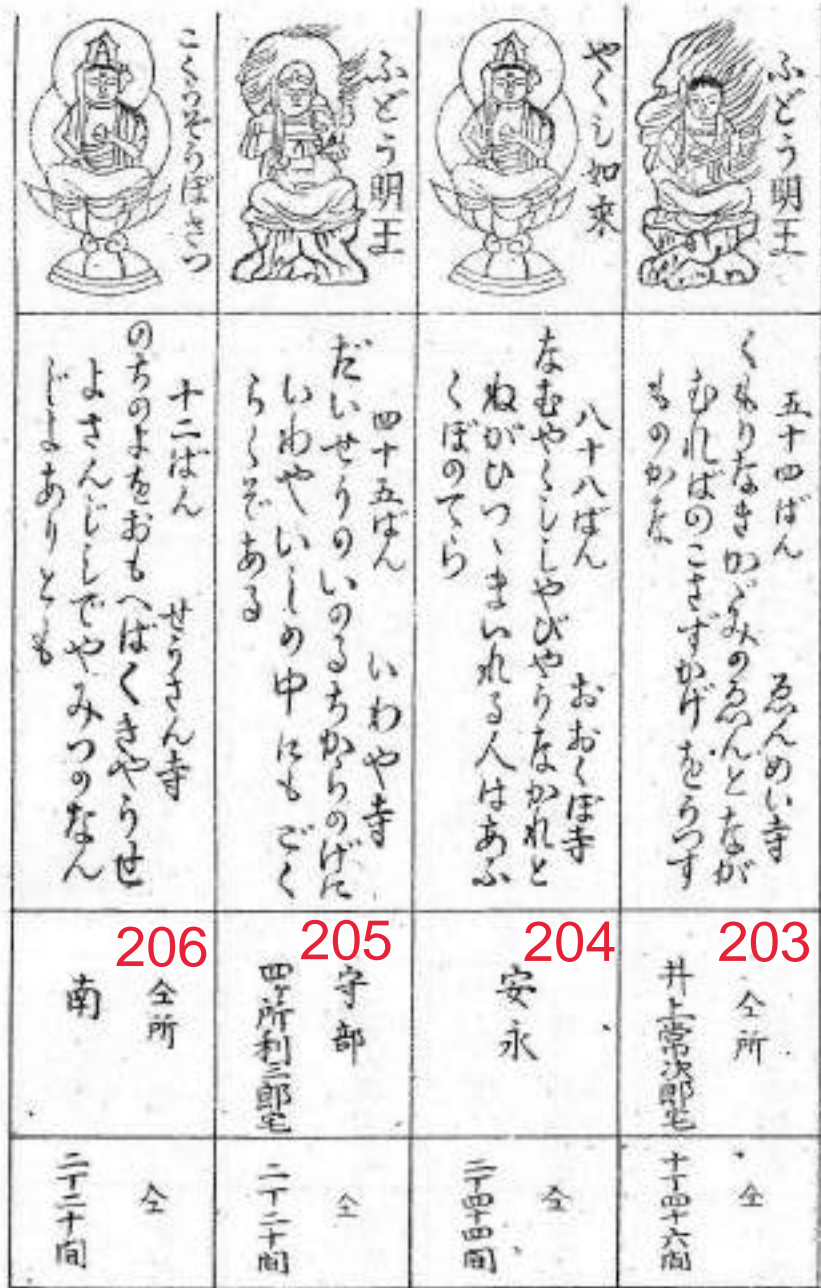 ふどう明王
五十四ばん　ゑんめい寺
くもりなきかゞみのゑんとなが
むればのこさずかげをうつす
ものかな
203
仝所
井上常次郎宅
仝
十丁四十六間
やくし如来
八十八ばん　おおくぼ寺
なむやくししやびやうなかれと
ねがひつゝまいれる人はあふ
くぼのてら
204
安永
仝
二丁四十四間
ふどう明王
四十五ばん　いわや寺
だいせうのいのるちからのげに
いわやいしの中にもごく
らくぞある
205
守部
四ヶ所利三郎宅
仝
二丁二十間
こくうぞうぼさつ
十二ばん　せうさん寺
のちのよをおもへばくきやうせ
よさんじしでやみつのなん
じよありとも
206
仝所
南
仝
二丁二十間